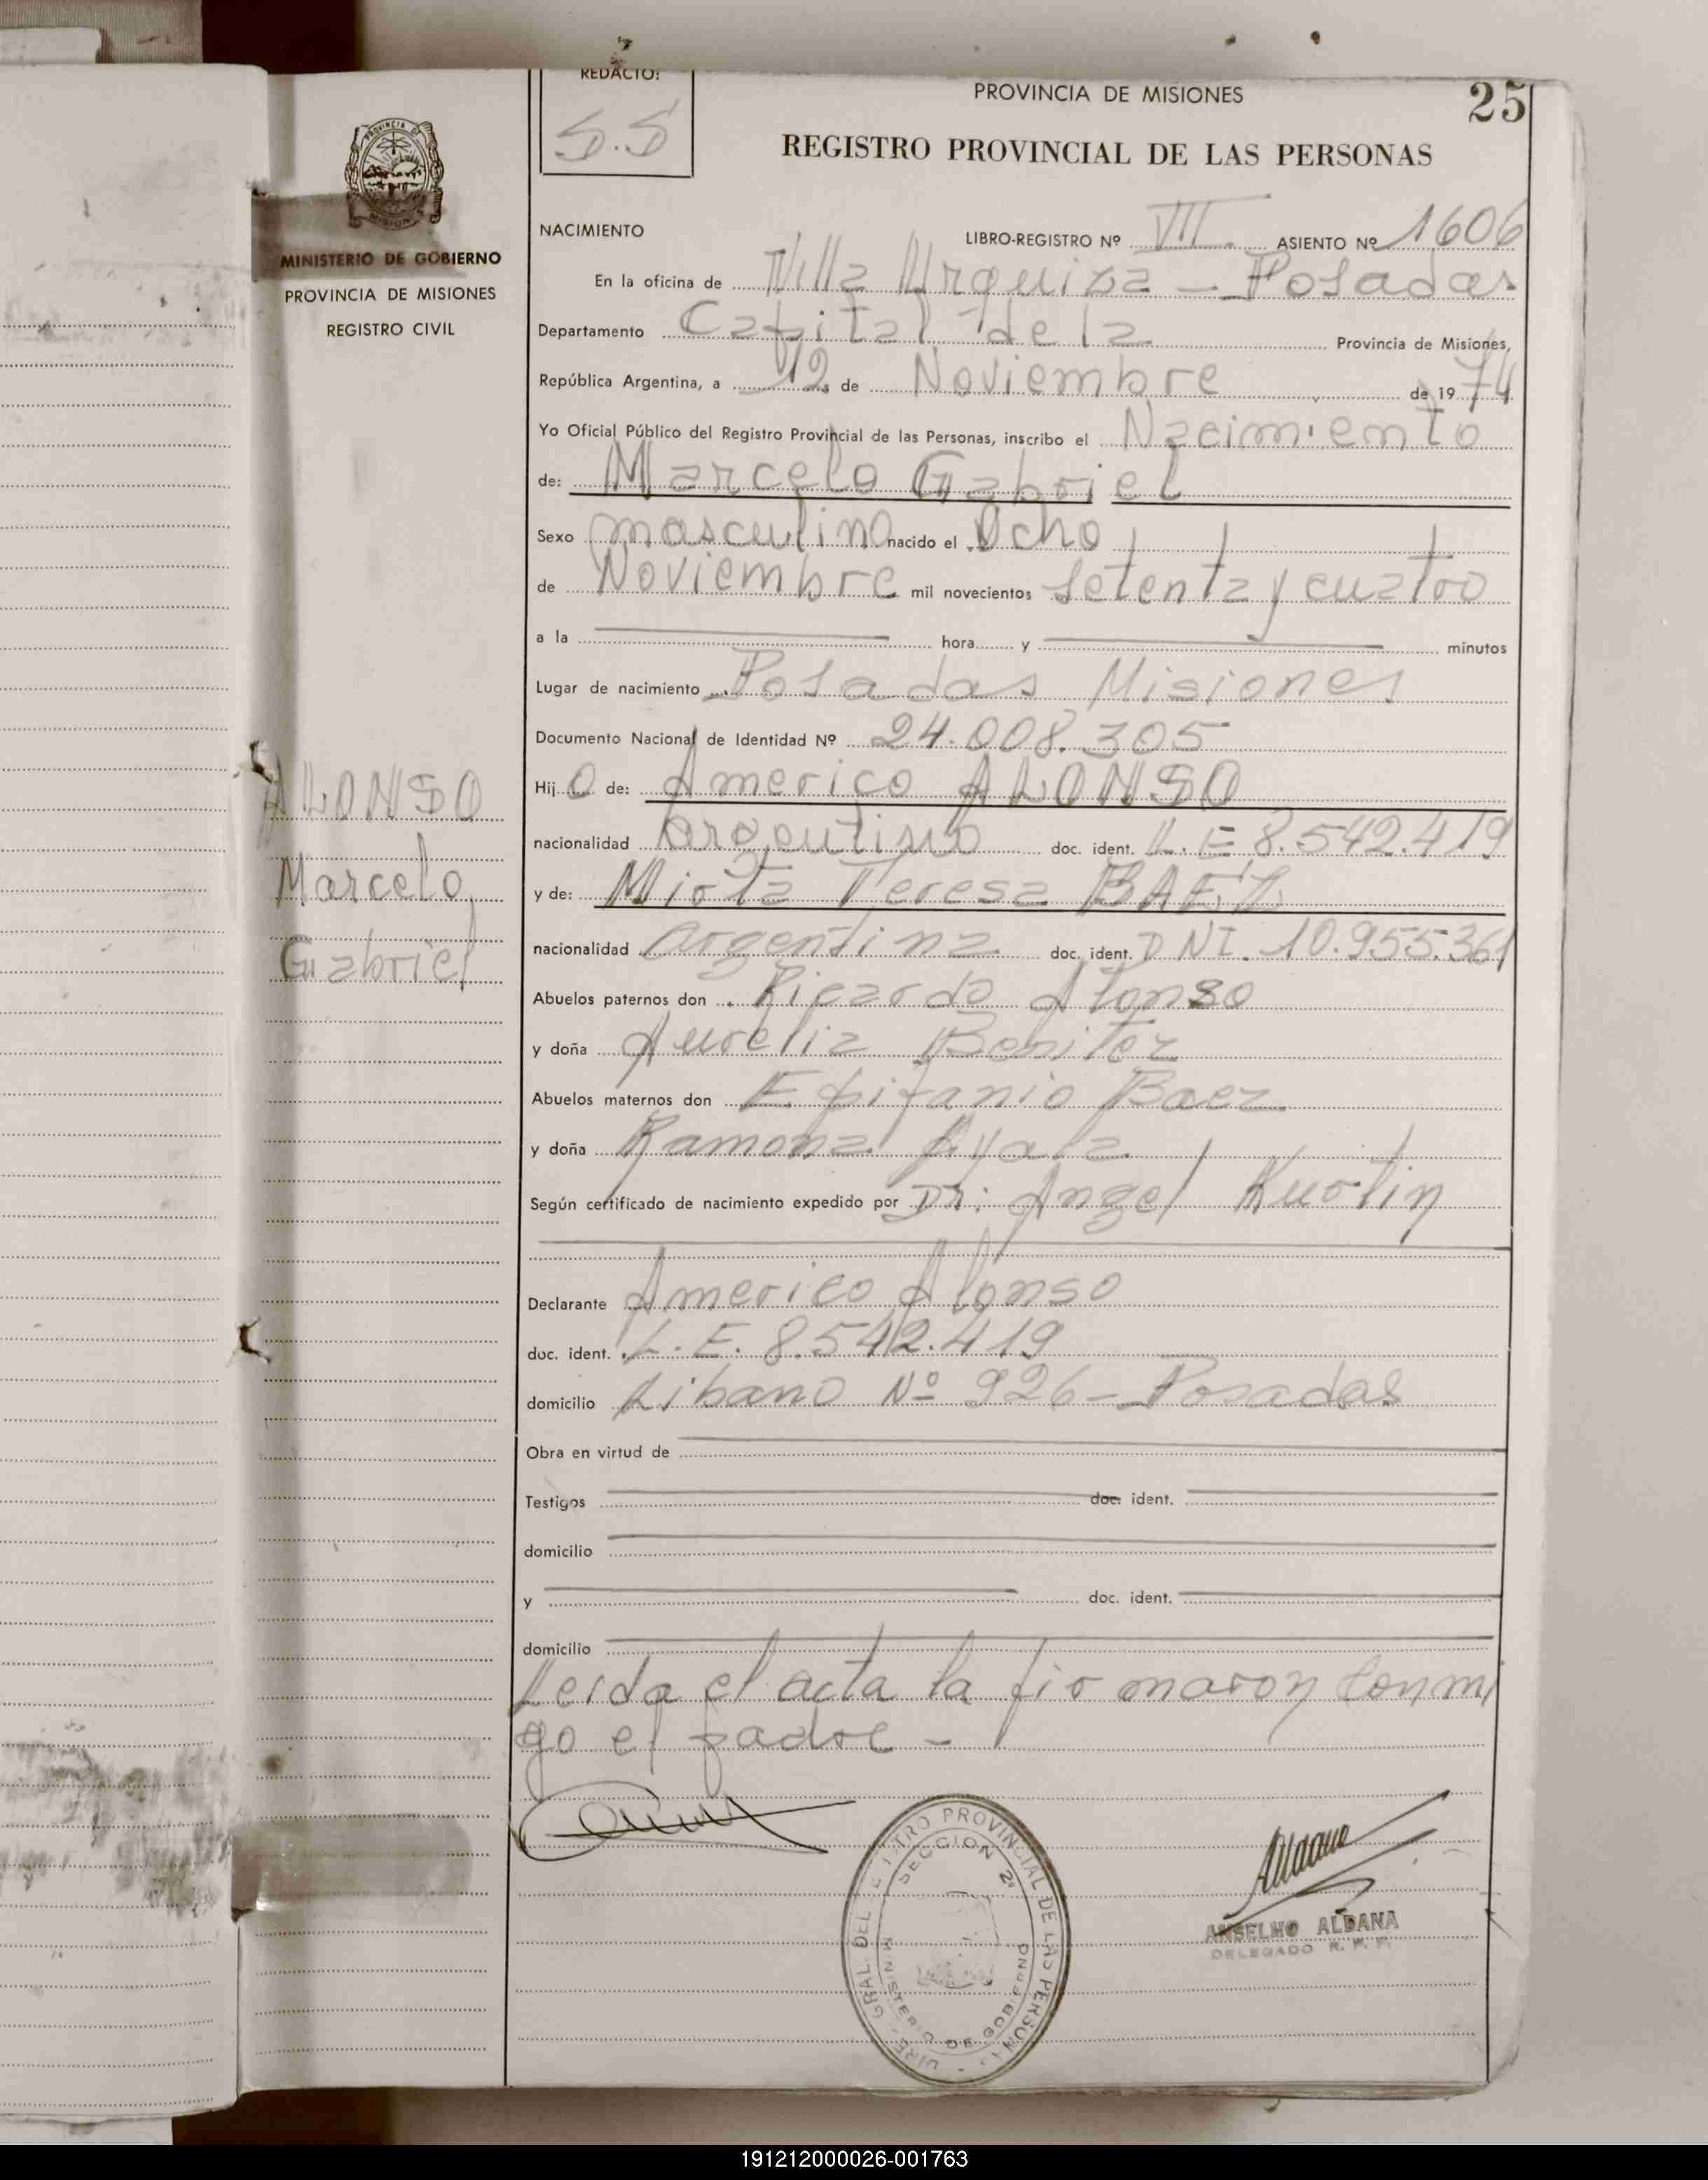 REDACTO:
S.S
PROVINCIA DE MISIONES
25
REGISTRO PROVINCIAL DE LAS PERSONAS
MINISTERIO DE GOBIERNO
PROVINCIA DE MISIONES
REGISTRO CIVIL
NACIMIENTO LIBRO-REGISTRO Nº VII. ASIENTO Nº 1606
En la oficina de Villa Urquiza - Posadas
Departamento Capital de la Provincia de Misiones,
República Argentina, a 12 de Noviembre de 1974
Yo Oficial Público del Registro Provincial de las Personas, inscribo el Nacimiento
de: Marcelo Gabriel
Sexo masculino nacido el Ocho
de Noviembre mil novecientos setenta y cuatro
a la hora y minutos
Lugar de nacimiento Posadas Misiones
Documento Nacional de Identidad Nº 24.008.305
Hijo de: Americo ALONSO
nacionalidad argentino doc. ident. L. E 8.542.419
y de: Mirta Teresa BAEZ
nacionalidad argentina doc. ident. D NI. 10.955.361
Abuelos paternos don Ricardo Alonso
y doña Aurelia Benitez
Abuelos maternos don Epifanio Baez
y doña Ramona Ayala
Según certificado de nacimiento expedido por Dr: Angel Kurtin
ALONSO
Marcelo
Gabriel
Declarante Americo Alonso
doc. ident. L. E. 8.542.419
domicilio Libano Nº 926 - Posadas
Obra en virtud de
Testigos doc. ident.
domicilio
y doc. ident.
domicilio
Leida el acta la firmaron conmi
go el padre -
GRAL. DEL REGISTRO PROVINCIAL DE LAS PERSONAS
SECCION 2ª
MINISTERIO DE GOBIERNO
Aldana
ANSELMO ALDANA
DELEGADO R. P. P.
191212000026-001763